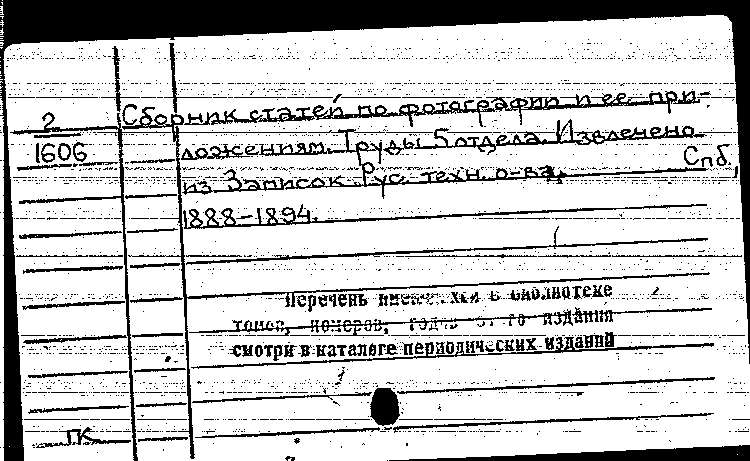 2 Сборник статей по фотографии и ее при-
1606 ложениям. Труды 5 отдела. Извлечено
из Записок Рус. техн. о-ва, Спб,
1888-1894.
Перечень имеющихся в библиотеке
томов, номеров, года этого издания
смотри в каталоге периодических изданий
ГК